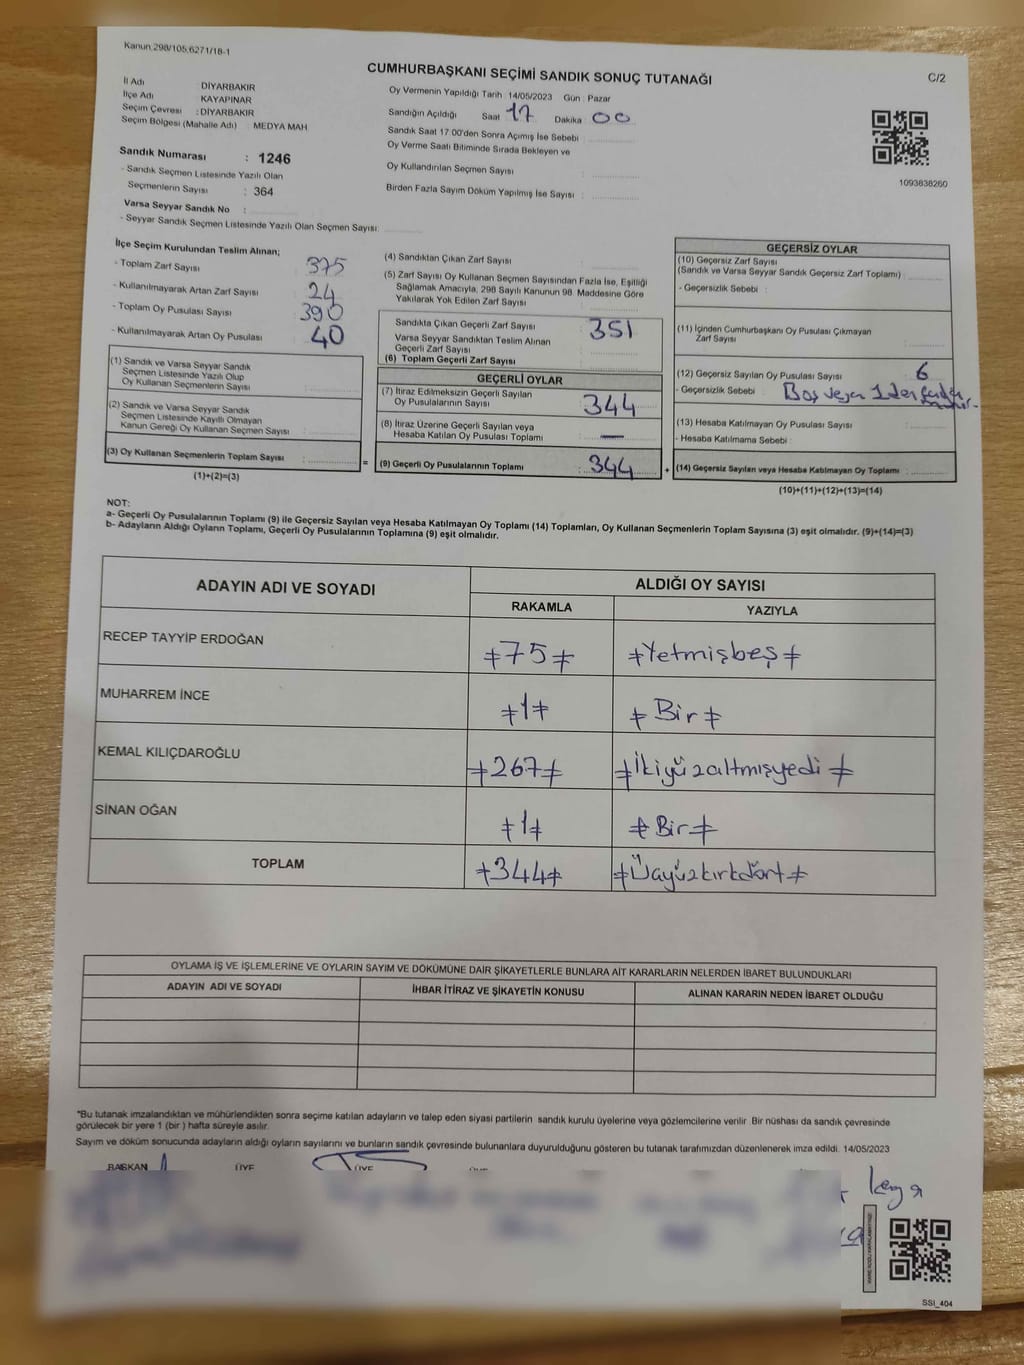 Kanun 298/105,6271/18-1
CUMHURBAŞKANI SEÇİMİ SANDIK SONUÇ TUTANAĞI
C/2
İl Adı DİYARBAKIR
İlçe Adı KAYAPINAR
Seçim Çevresi : DİYARBAKIR
Seçim Bölgesi (Mahalle Adı) : MEDYA MAH
Sandık Numarası : 1246
- Sandık Seçmen Listesinde Yazılı Olan
Seçmenlerin Sayısı : 364
Varsa Seyyar Sandık No :
- Seyyar Sandık Seçmen Listesinde Yazılı Olan Seçmen Sayısı:
Oy Vermenin Yapıldığı Tarih : 14/05/2023 Gün : Pazar
Sandığın Açıldığı Saat 17 Dakika 00
Sandık Saat 17:00'den Sonra Açılmış İse Sebebi :
Oy Verme Saati Bitiminde Sırada Bekleyen ve
Oy Kullandırılan Seçmen Sayısı :
Birden Fazla Sayım Döküm Yapılmış İse Sayısı :
1093838260
İlçe Seçim Kurulundan Teslim Alınan;
- Toplam Zarf Sayısı 375
- Kullanılmayarak Artan Zarf Sayısı 24
- Toplam Oy Pusulası Sayısı 390
- Kullanılmayarak Artan Oy Pusulası 40
(1) Sandık ve Varsa Seyyar Sandık
Seçmen Listesinde Yazılı Olup
Oy Kullanan Seçmenlerin Sayısı :
(2) Sandık ve Varsa Seyyar Sandık
Seçmen Listesinde Kayıtlı Olmayan
Kanun Gereği Oy Kullanan Seçmen Sayısı :
(3) Oy Kullanan Seçmenlerin Toplam Sayısı :
(1)+(2)=(3)
=
(4) Sandıktan Çıkan Zarf Sayısı :
(5) Zarf Sayısı Oy Kullanan Seçmen Sayısından Fazla İse, Eşitliği
Sağlamak Amacıyla, 298 Sayılı Kanunun 98. Maddesine Göre
Yakılarak Yok Edilen Zarf Sayısı :
Sandıkta Çıkan Geçerli Zarf Sayısı : 351
Varsa Seyyar Sandıktan Teslim Alınan
Geçerli Zarf Sayısı
(6) Toplam Geçerli Zarf Sayısı :
GEÇERLİ OYLAR
(7) İtiraz Edilmeksizin Geçerli Sayılan
Oy Pusulalarının Sayısı : 344
(8) İtiraz Üzerine Geçerli Sayılan veya
Hesaba Katılan Oy Pusulası Toplamı : —
(9) Geçerli Oy Pusulalarının Toplamı : 344
+
GEÇERSİZ OYLAR
(10) Geçersiz Zarf Sayısı
(Sandık ve Varsa Seyyar Sandık Geçersiz Zarf Toplamı) :
- Geçersizlik Sebebi :
(11) İçinden Cumhurbaşkanı Oy Pusulası Çıkmayan
Zarf Sayısı :
(12) Geçersiz Sayılan Oy Pusulası Sayısı : 6
- Geçersizlik Sebebi : Boş veya 1 den fazla
(13) Hesaba Katılmayan Oy Pusulası Sayısı :
- Hesaba Katılmama Sebebi :
(14) Geçersiz Sayılan veya Hesaba Katılmayan Oy Toplamı :
(10)+(11)+(12)+(13)=(14)
NOT:
a- Geçerli Oy Pusulalarının Toplamı (9) ile Geçersiz Sayılan veya Hesaba Katılmayan Oy Toplamı (14) Toplamları, Oy Kullanan Seçmenlerin Toplam Sayısına (3) eşit olmalıdır. (9)+(14)=(3)
b- Adayların Aldığı Oyların Toplamı, Geçerli Oy Pusulalarının Toplamına (9) eşit olmalıdır.
ADAYIN ADI VE SOYADI ALDIĞI OY SAYISI
RAKAMLA YAZIYLA
RECEP TAYYİP ERDOĞAN ≠75≠ ≠Yetmişbeş≠
MUHARREM İNCE ≠1≠ ≠Bir≠
KEMAL KILIÇDAROĞLU ≠267≠ ≠İkiyüzaltmışyedi≠
SİNAN OĞAN ≠1≠ ≠Bir≠
TOPLAM ≠344≠ ≠Üçyüzkırkdört≠
OYLAMA İŞ VE İŞLEMLERİNE VE OYLARIN SAYIM VE DÖKÜMÜNE DAİR ŞİKAYETLERLE BUNLARA AİT KARARLARIN NELERDEN İBARET BULUNDUKLARI
ADAYIN ADI VE SOYADI İHBAR İTİRAZ VE ŞİKAYETİN KONUSU ALINAN KARARIN NEDEN İBARET OLDUĞU
*Bu tutanak imzalandıktan ve mühürlendikten sonra seçime katılan adayların ve talep eden siyasi partilerin sandık kurulu üyelerine veya gözlemcilerine verilir. Bir nüshası da sandık çevresinde
görülecek bir yere 1 (bir ) hafta süreyle asılır.
Sayım ve döküm sonucunda adayların aldığı oyların sayılarını ve bunların sandık çevresinde bulunanlara duyurulduğunu gösteren bu tutanak tarafımızdan düzenlenerek imza edildi. 14/05/2023
BAŞKAN ÜYE ÜYE
SSI_404